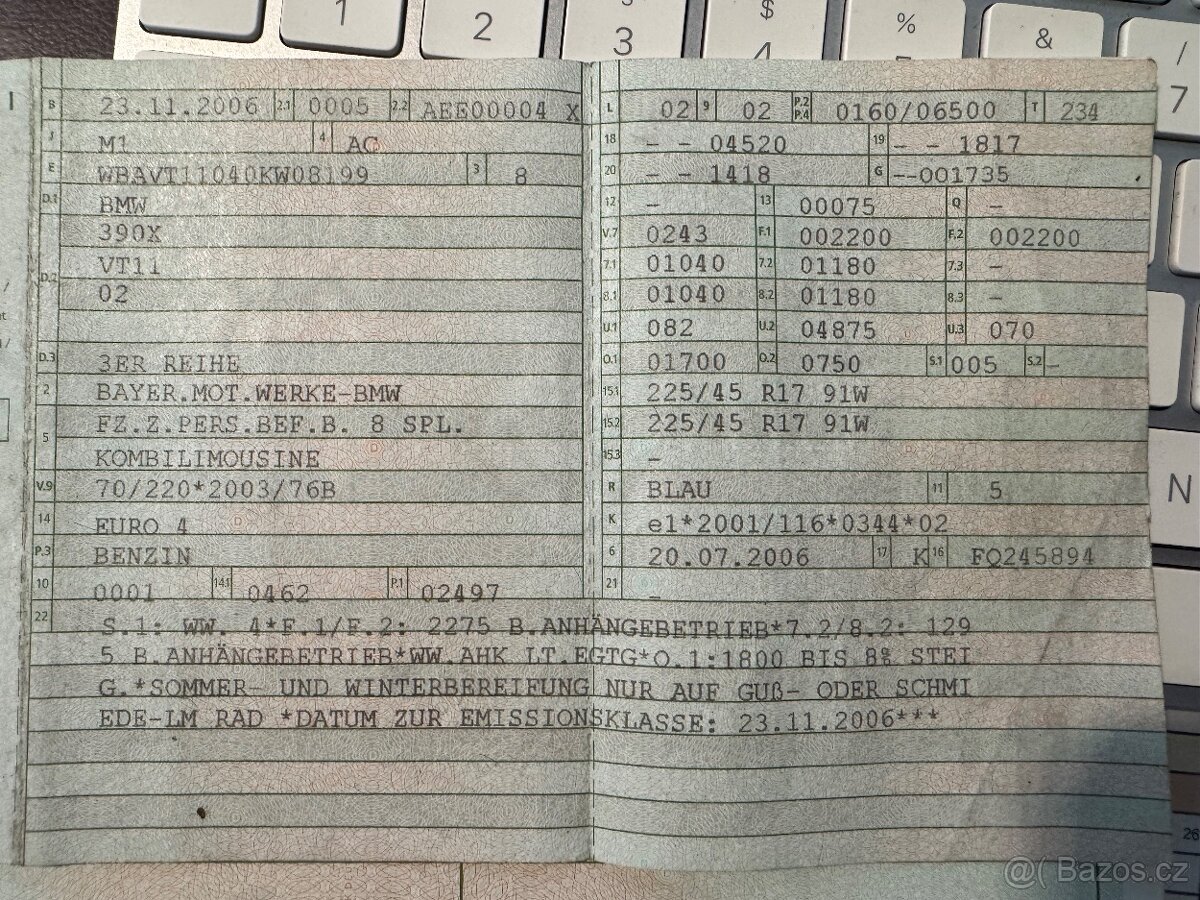 1 2 3 $ 4 % & / 7
B 23.11.2006 2.1 0005 2.2 AEE00004 X L 02 9 02 P.2 P.4 0160/06500 T 234
J M1 4 AC 18 - - 04520 19 - - 1817
E WBAVT11040KW08199 3 8 20 - - 1418 G --001735
D.1 BMW 12 - 13 00075 Q -
390X V.7 0243 F.1 002200 F.2 002200
D.2 VT11 7.1 01040 7.2 01180 7.3 -
02 8.1 01040 8.2 01180 8.3 -
U.1 082 U.2 04875 U.3 070
D.3 3ER REIHE O.1 01700 O.2 0750 S.1 005 S.2 -
2 BAYER.MOT.WERKE-BMW 15.1 225/45 R17 91W
5 FZ.Z.PERS.BEF.B. 8 SPL. 15.2 225/45 R17 91W
KOMBILIMOUSINE 15.3 -
V.9 70/220*2003/76B R BLAU 11 5
14 EURO 4 K e1*2001/116*0344*02
P.3 BENZIN 6 20.07.2006 17 K 16 FQ245894
10 0001 14.1 0462 P.1 02497 21 -
22 S.1: WW. 4*F.1/F.2: 2275 B.ANHÄNGEBETRIEB*7.2/8.2: 129
5 B.ANHÄNGEBETRIEB*WW.AHK LT.EGTG*O.1:1800 BIS 8% STEI
G.*SOMMER- UND WINTERBEREIFUNG NUR AUF GUß- ODER SCHMI
EDE-LM RAD *DATUM ZUR EMISSIONSKLASSE: 23.11.2006***
N
26
@( Bazos.cz